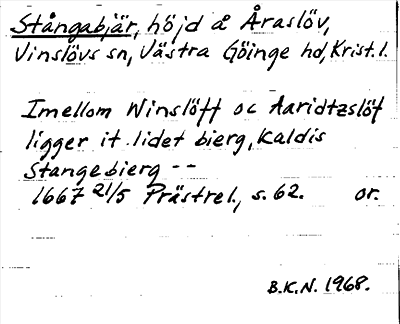 Stångabjär, höjd å Åraslöv,
Vinslövs sn, Västra Göinge hd, Krist. l.
Imellom Winslöff oc Aaridtzslöf
ligger it lidet bierg, kaldis
Stangebierg --
1667 21/5 Prästrel., s. 62. or.
B.K.N. 1968.